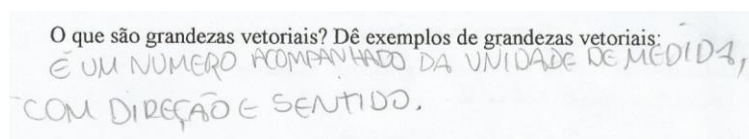 O que são grandezas vetoriais? Dê exemplos de grandezas vetoriais:
É UM NUMERO ACOMPANHADO DA UNIDADE DE MEDIDA,
COM DIREÇÃO E SENTIDO.